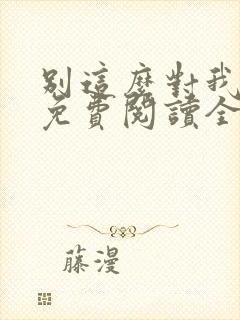 別這麼對我
免費閱讀全
藤漫